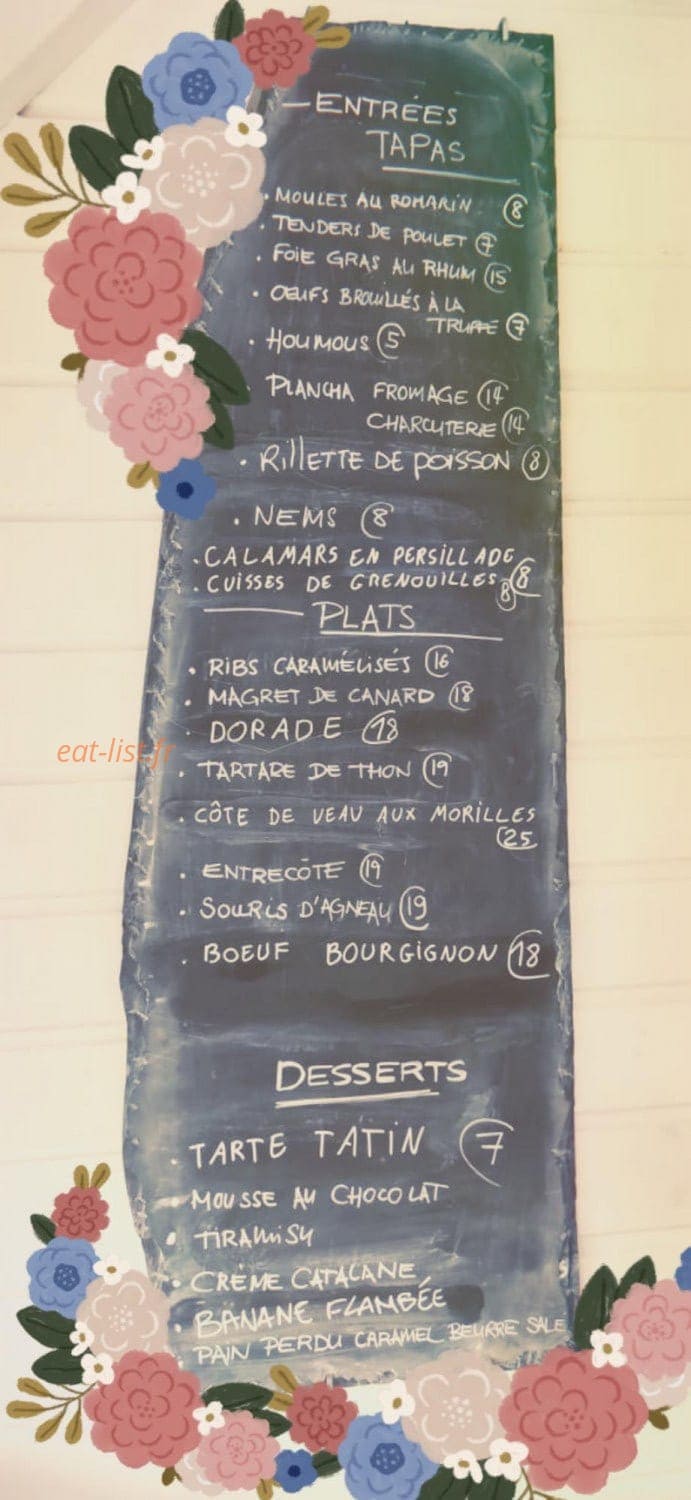 — ENTRÉES
TAPAS
• MOULES AU ROMARIN 8
• TENDERS DE POULET 7
• FOIE GRAS AU RHUM 15
• OEUFS BROUILLÉS À LA
TRUFFE 7
• HOUMOUS 5
PLANCHA FROMAGE 14
CHARCUTERIE 14
• RILLETTE DE POISSON 8
• NEMS 8
• CALAMARS EN PERSILLADE 8
• CUISSES DE GRENOUILLES 8
PLATS
• RIBS CARAMÉLISÉS 16
• MAGRET DE CANARD 18
• DORADE 18
eat-list.fr
• TARTARE DE THON 19
• CÔTE DE VEAU AUX MORILLES
25
• ENTRECÔTE 19
• SOURIS D'AGNEAU 19
• BOEUF BOURGIGNON 18
DESSERTS
• TARTE TATIN 7
• MOUSSE AU CHOCOLAT
• TIRAMISU
• CRÈME CATALANE
• BANANE FLAMBÉE
PAIN PERDU CARAMEL BEURRE SALE